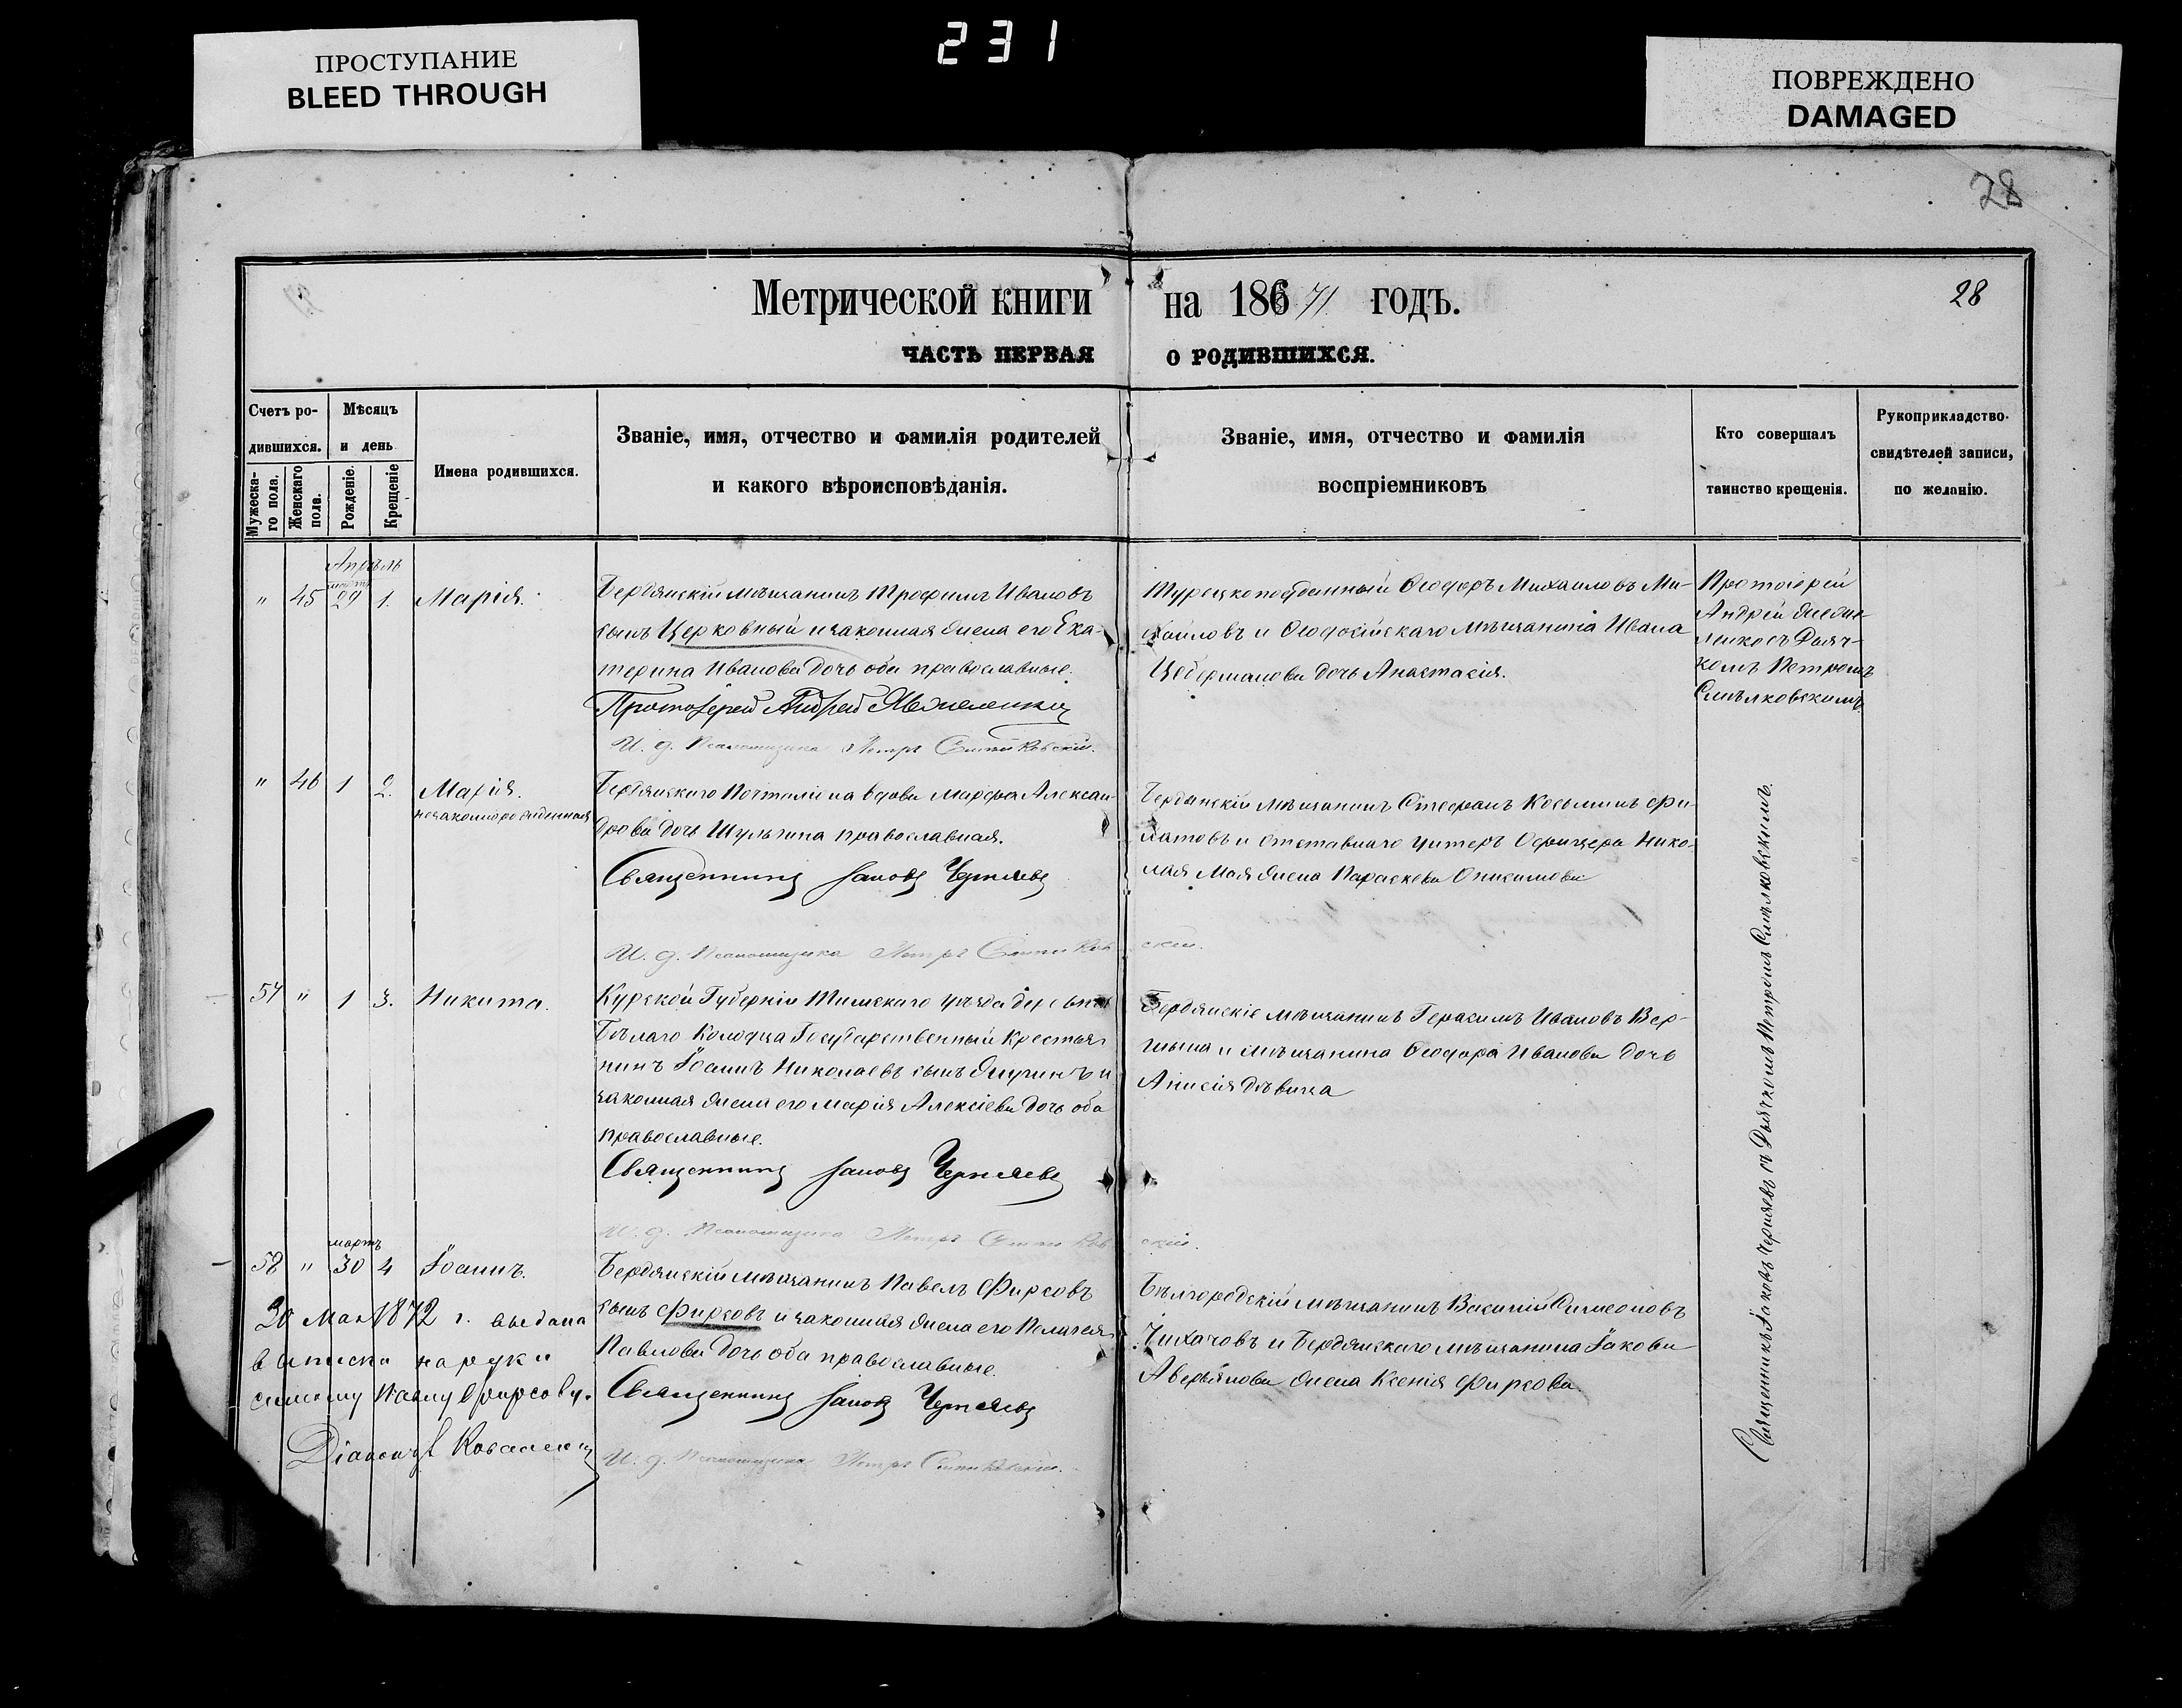 231
ПРОСТУПАНИЕ
BLEED THROUGH
ПОВРЕЖДЕНО
DAMAGED
28
Метрической книги на 186 71 годъ.
28
ЧАСТЬ ПЕРВАЯ О РОДИВШИХСЯ.
Счетъ ро-
дившихся.
Мужеска-
го пола.
Женскаго
пола.
Мѣсяцъ
и день
Рожденіе.
Крещеніе
Имена родившихся.
Званіе, имя, отчество и фамилія родителей
и какого вѣроисповѣданія.
Званіе, имя, отчество и фамилія
воспріемниковъ
Кто совершалъ
таинство крещенія.
Рукоприкладство
свидѣтелей записи,
по желанію.
Апрѣль
марта
" 45 29 1. Марія.
Бердянскій мѣщанинъ Трофимъ Ивановъ
сынъ Церковный и законная жена его Ека-
терина Иванова дочь оба православные.
Протоіерей Андрей
И. д. Псаломщика Петръ Смѣлковскій.
Турецкоподданный Ѳеодоръ Михаиловъ Ми-
хайловъ и Ѳеодосійскаго мѣщанина Ивана
дочь Анастасія.
Протоіерей
Андрей
съ Дьяч-
комъ Петромъ
Смѣлковскимъ
" 46 1 2. Марія.
незаконнорожденная
Бердянскаго Почталіона вдова Марфа Алексан-
дрова дочь Шульгина православная.
Священникъ Іаковъ Черняевъ
И. д. Псаломщика Петръ Смѣлковскій.
Бердянскій мѣщанинъ Стефанъ Косьминъ Фи-
латовъ и отставнаго унтеръ Офицера Нико-
лая жена Параскева Онисимова
57 " 1 3. Никита.
Курской Губерніи Тимскаго уѣзда деревни
Бѣлаго Колодца Государственный крестья-
нинъ Іоаннъ Николаевъ сынъ и
законная жена его Марія Алексіева дочь оба
православные.
Священникъ Іаковъ Черняевъ
И. д. Псаломщика Петръ Смѣлковскій.
Бердянскіе мѣщанинъ Герасимъ Ивановъ Вер-
шина и мѣщанина Ѳеодора Иванова дочь
Анисія дѣвица
мартъ
58 " 30 4 Іоаннъ.
Бердянскій мѣщанинъ Павелъ Фирсовъ
сынъ Фирсовъ и законная жена его Пелагея
Павлова дочь оба православные.
Священникъ Іаковъ Черняевъ
И. д. Псаломщика Петръ Смѣлковскій.
Бѣлгородскій мѣщанинъ Василій Симеоновъ
Чихачовъ и Бердянскаго мѣщанина Іакова
Аверьянова жена Ксенія Фирсова.
30 Мая 1872 г. выдана
выписка на руки
самому Павлу Фирсову.
Діаконъ І. Коваленко
Священникъ Іаковъ Черняевъ съ Дьячкомъ Петромъ Смѣлковскимъ.